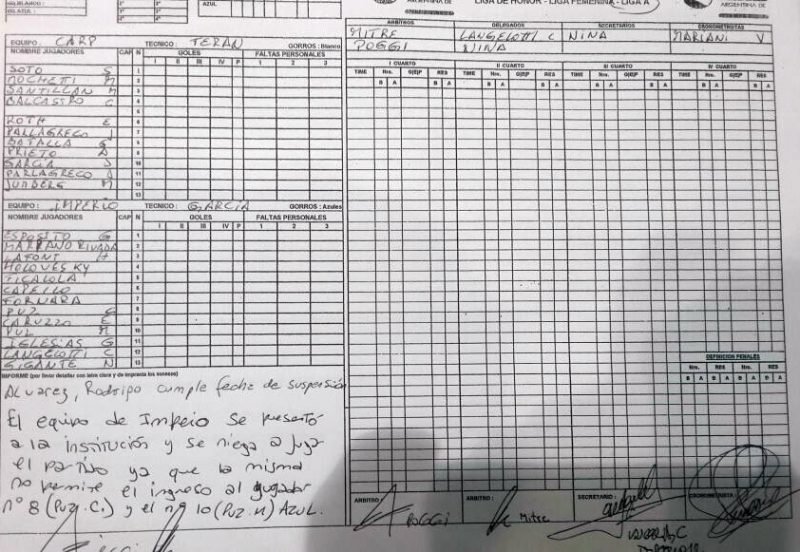 LIGA DE HONOR - LIGA FEMENINA - LIGA A
ARGENTINA DE
AZUL
ARBITROS DELEGADOS SECRETARIOS CRONOMETRISTAS
MITRE LANGELOTTI C NINA MARIANI V
POGGI NINA
EQUIPO : CARP TECNICO : TERAN GORROS : Blanco
NOMBRE JUGADORES CAP N GOLES FALTAS PERSONALES
I II III IV P 1 2 3
SOTO S 1
MOCHETTI M 2
SANTILLAN M 3
BALCASTRO G 4
5
ROTH E 6
PALLAGRECO J 7
BATALLA G 8
PRIETO A 9
GARCIA S 10
PARLAGRECO A 11
JUNBERG M 12
13
EQUIPO : IMPERIO TECNICO : GARCIA GORROS : Azules
NOMBRE JUGADORES CAP N GOLES FALTAS PERSONALES
I II III IV P 1 2 3
ESPOSITO G 1
MARRANO RIVADA 2
LAFONT H 3
HOLOVESKY 4
TICALOLA 5
CAPELLO 6
FORNARA 7
PUZ C 8
CARUZZO E 9
PUZ M 10
IGLESIAS G 11
LANGELOTTI C 12
GIGANTE N 13
I CUARTO II CUARTO III CUARTO IV CUARTO
TIME Nro. G|E|P RES TIME Nro. G|E|P RES TIME Nro. G|E|P RES TIME Nro. G|E|P RES
B A B A B A B A B A B A B A B A
DEFINICION PENALES
Nro. RES Nro. RES
B A B A B A B A
INFORME (por favor detallar con letra clara y de imprenta los sucesos)
Alvarez, Rodrigo cumple fecha de suspensión
El equipo de Imperio se presentó
a la institución y se niega a jugar
el partido ya que la misma
no permite el ingreso al jugador
nº 8 (Puz. C.) y el nº 10 (Puz. M) AZUL.
ARBITRO : POGGI ARBITRO : Mitre SECRETARIO : CRONOMETRISTA :